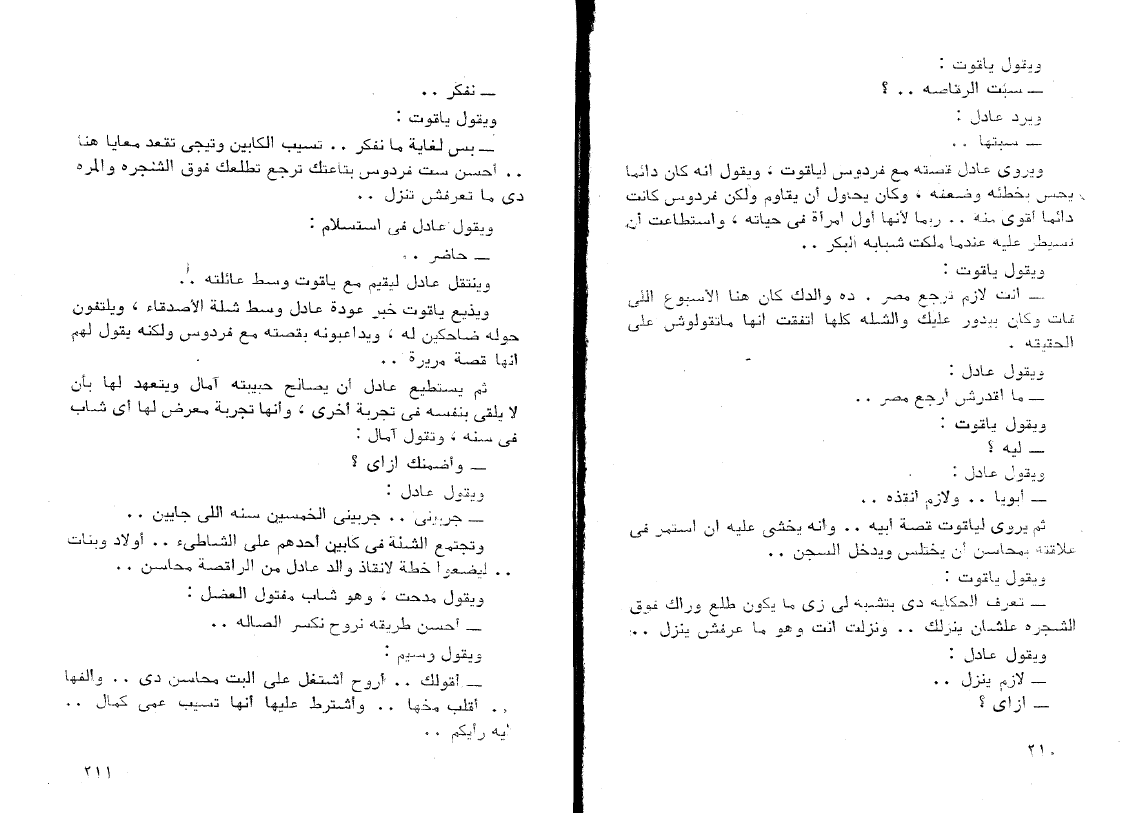 ويقول ياقوت :
— سبت الرقاصه . . ؟
ويرد عادل :
— سبتها . .
ويروى عادل قصته مع فردوس لياقوت ، ويقول انه كان دائما
يحس بخطئه وضعفه ، وكان يحاول أن يقاوم ولكن فردوس كانت
دائما أقوى منه . . ربما لأنها أول امرأة فى حياته ، واستطاعت أن
تسيطر عليه عندما ملكت شبابه البكر . .
ويقول ياقوت :
— انت لازم ترجع مصر . ده والدك كان هنا الأسبوع اللى
فات وكان بيدور عليك والشله كلها اتفقت انها ماتقولوش على
الحقيقه .
ويقول عادل :
— ما اقدرش ارجع مصر . .
ويقول ياقوت :
— ليه ؟
ويقول عادل :
— أبويا . . ولازم أنقذه . .
ثم يروى لياقوت قصة أبيه . . وانه يخشى عليه ان استمر فى
علاقته بمحاسن أن يختلس ويدخل السجن . .
ويقول ياقوت :
— تعرف الحكايه دى بتشبه لى زى ما يكون طلع وراك فوق
الشجره علشان ينزلك . . ونزلت انت وهو ما عرفش ينزل . .
ويقول عادل :
— لازم ينزل . .
— ازاى ؟
٢١٠
— نفكر . .
ويقول ياقوت :
— بس لغاية ما نفكر . . تسيب الكابين وتيجى تقعد معايا هنا
. . أحسن ست فردوس بتاعتك ترجع تطلعك فوق الشجره والمره
دى ما تعرفش تنزل . .
ويقول عادل فى استسلام :
— حاضر . .
وينتقل عادل ليقيم مع ياقوت وسط عائلته . .
ويذيع ياقوت خبر عودة عادل وسط شلة الأصدقاء ، ويلتفون
حوله ضاحكين له ، ويداعبونه بقصته مع فردوس ولكنه يقول لهم
انها قصة مريرة . .
ثم يستطيع عادل أن يصالح حبيبته آمال ويتعهد لها بأن
لا يلقى بنفسه فى تجربة أخرى ، وأنها تجربة معرض لها أى شاب
فى سنه ، وتقول آمال :
— وأضمنك ازاى ؟
ويقول عادل :
— جربنى . . جربينى الخمسين سنه اللى جايين . .
وتجتمع الشلة فى كابين أحدهم على الشاطىء . . أولاد وبنات
. . ليضعوا خطة لانقاذ والد عادل من الراقصة محاسن . .
ويقول مدحت ، وهو شاب مفتول العضل :
— أحسن طريقه نروح نكسر الصاله . .
ويقول وسيم :
— أقولك . . أروح أشتغل على البت محاسن دى . . والفها
. . أقلب مخها . . وأشترط عليها أنها تسيب عمى كمال . .
ايه رأيكم . .
٢١١